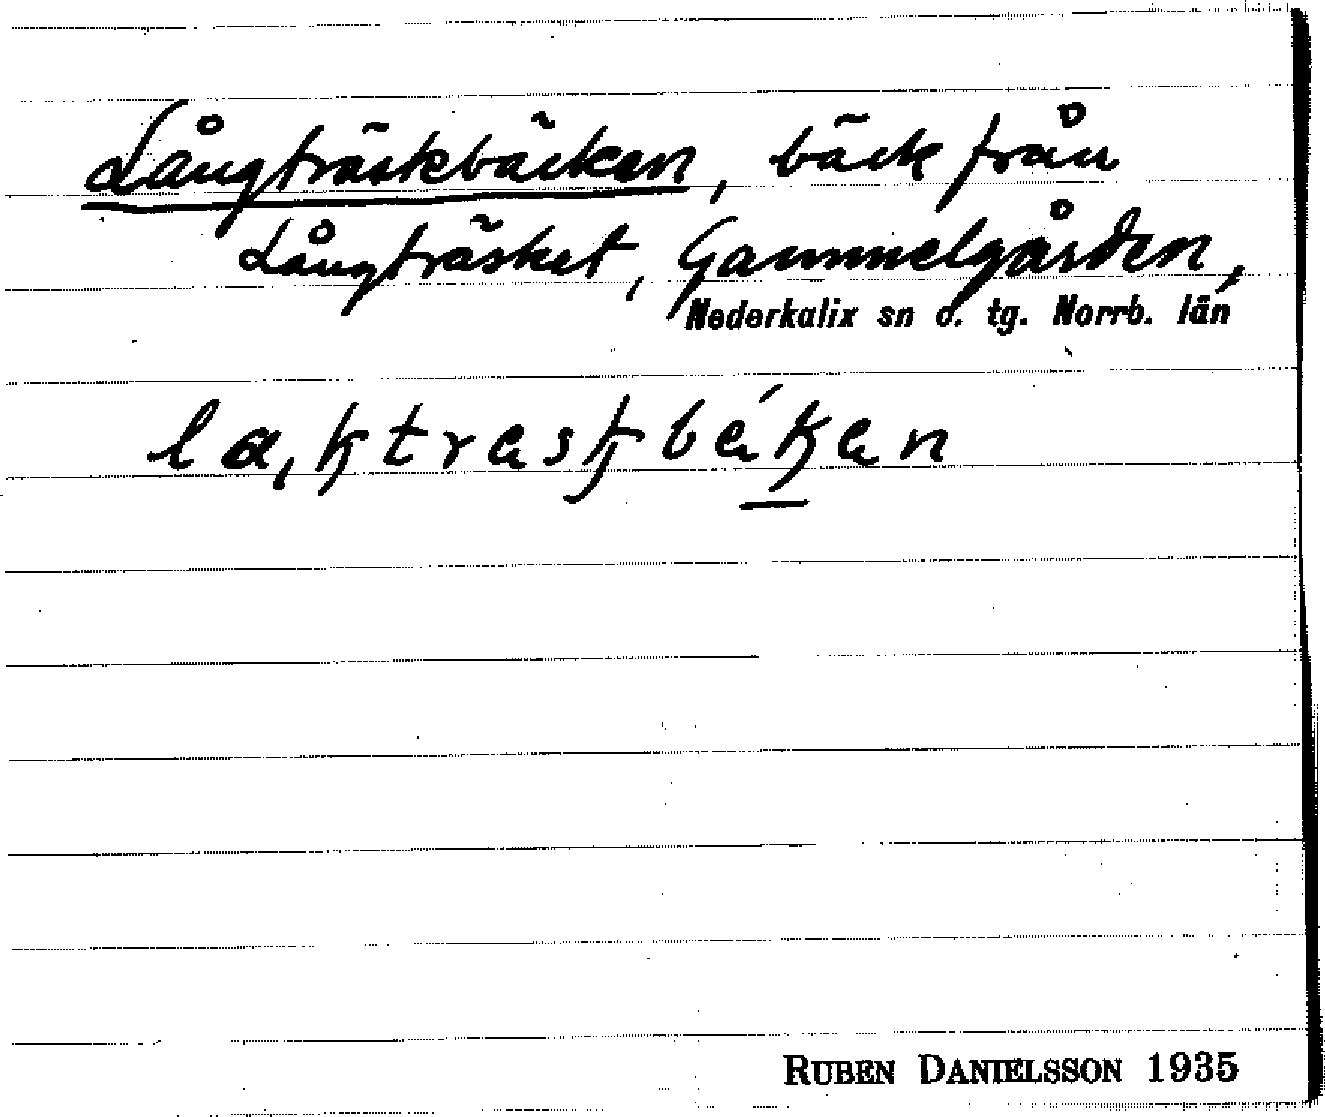 Långträskbäcken, bäck från
Långträsket, Gammelgården,
Nederkalix sn o. tg. Norrb. län
RUBEN DANIELSSON 1935